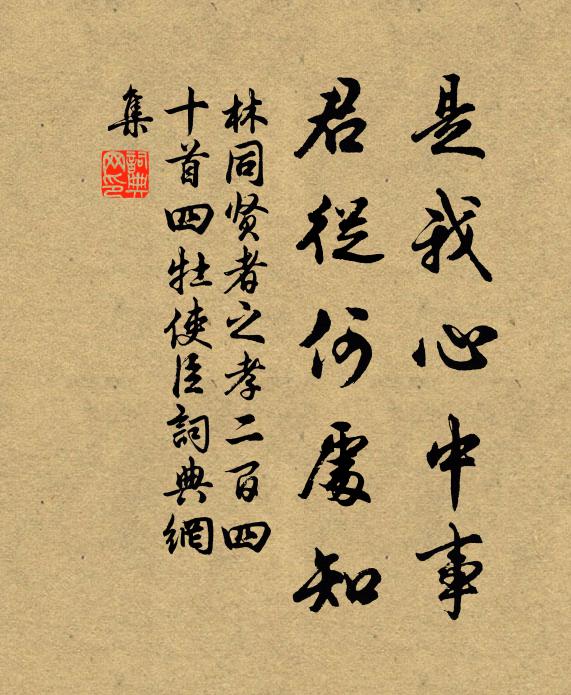 是我心中事
君從何處知
林同贤者之孝二百四
十首四牡使臣詞典網
集
詞典
网印